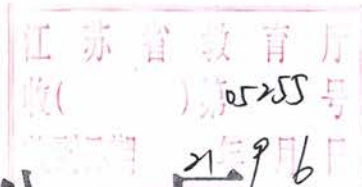 江苏省教育厅
收( )第05255号
21年9月6日